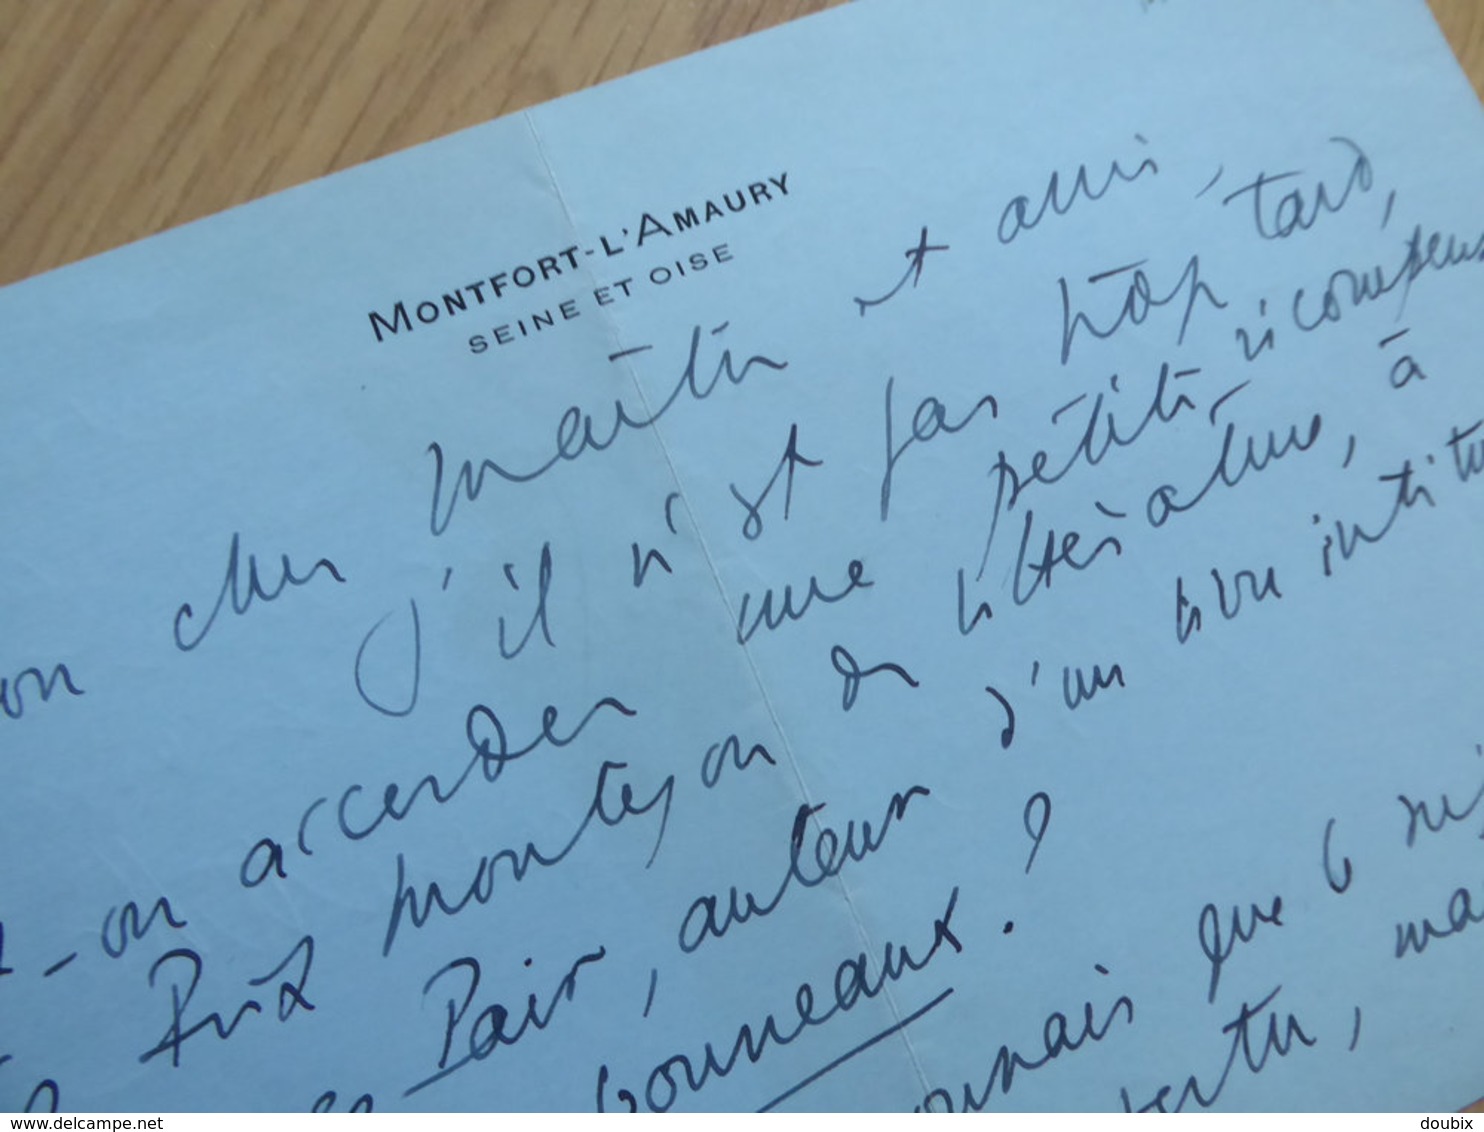 MONTFORT-L'AMAURY
SEINE ET OISE
on cher maître et ami,
s'il n'est pas trop tard,
-on accorder une petite récompens
Prix Montyon de littérature, à
Pair, auteur d'un livre intitu
bonneaux ?
nnais que le
ertu, ma
www.delcampe.net
doubix